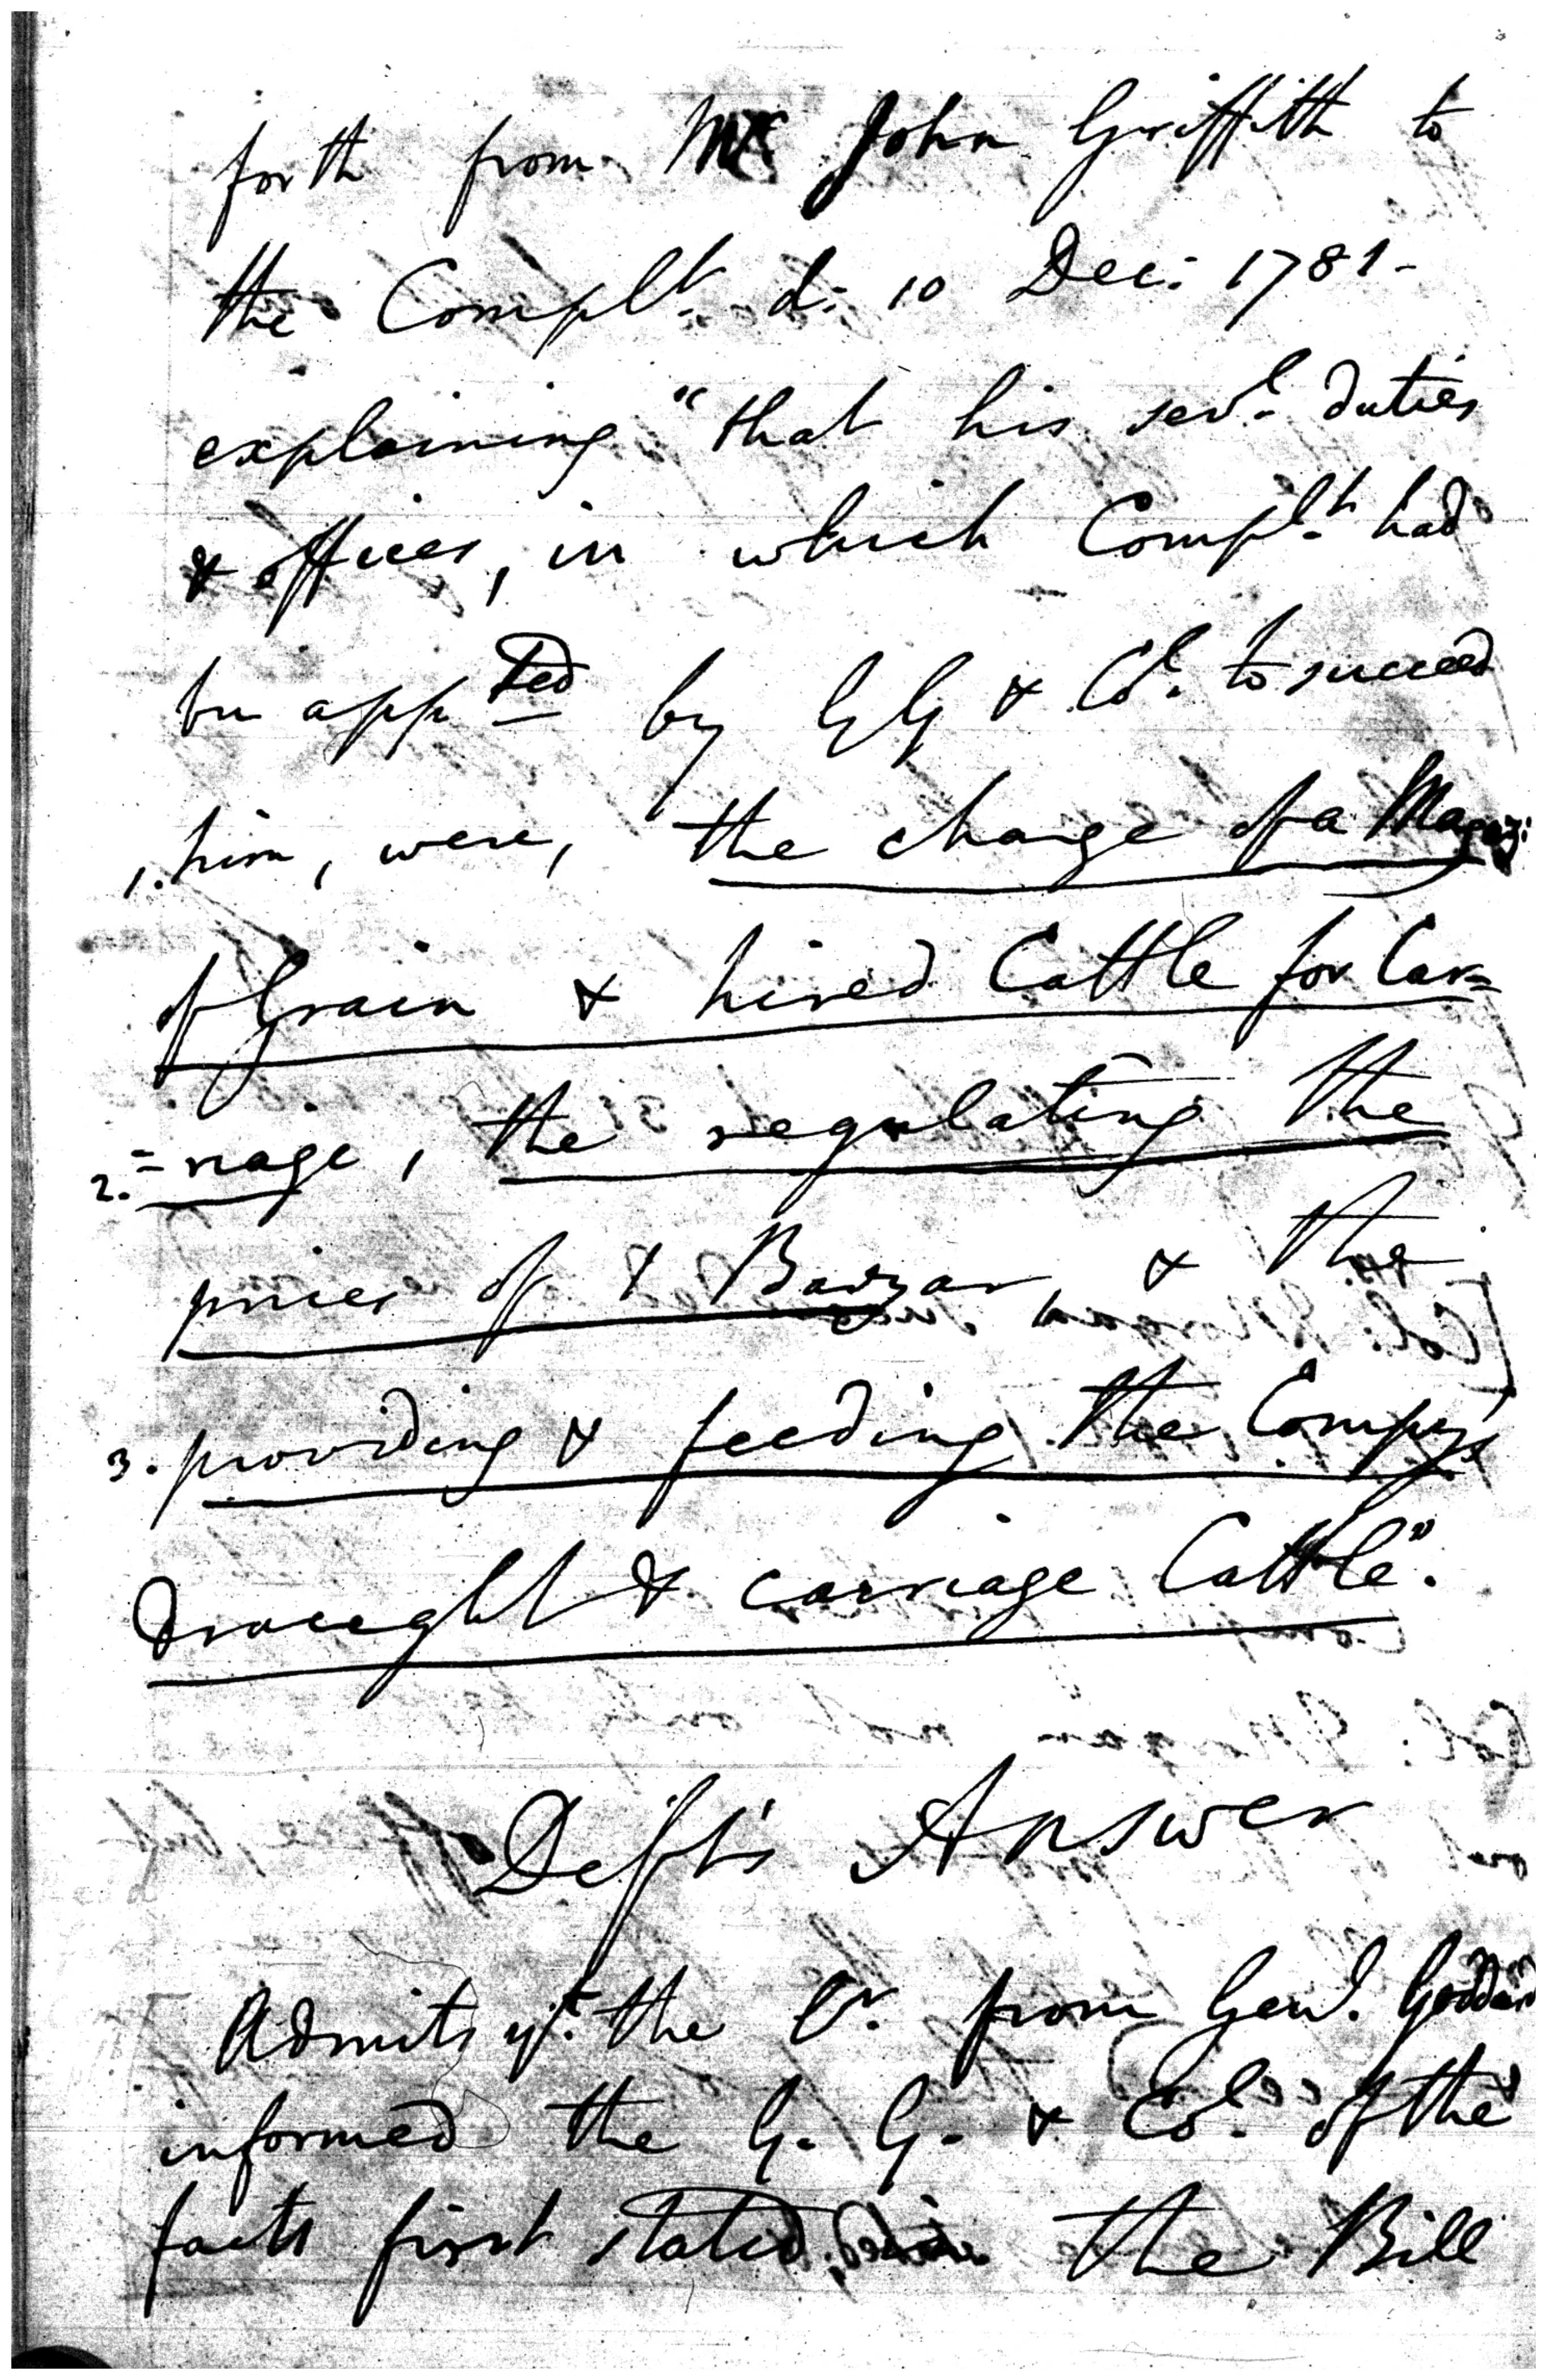 forth from Mr John Griffith to
the Complt. d: 10 Dec: 1781-
explaining "that his sevl. duties
& offices, in which Complt. had
bn appted by GG & Cl. to succeed
1. him, were, the charge of a Magaz:
of Grain & hired Cattle for Car=
2. =riage, the regulating the
prices of & Bazar, & the
3. providing & feeding the Compy's
draught & carriage Cattle".
Deft's Answer
Admits yt. the Lr. from Genl. Goddard
informed the G. G. & Cl. of the
facts first stated in the Bill